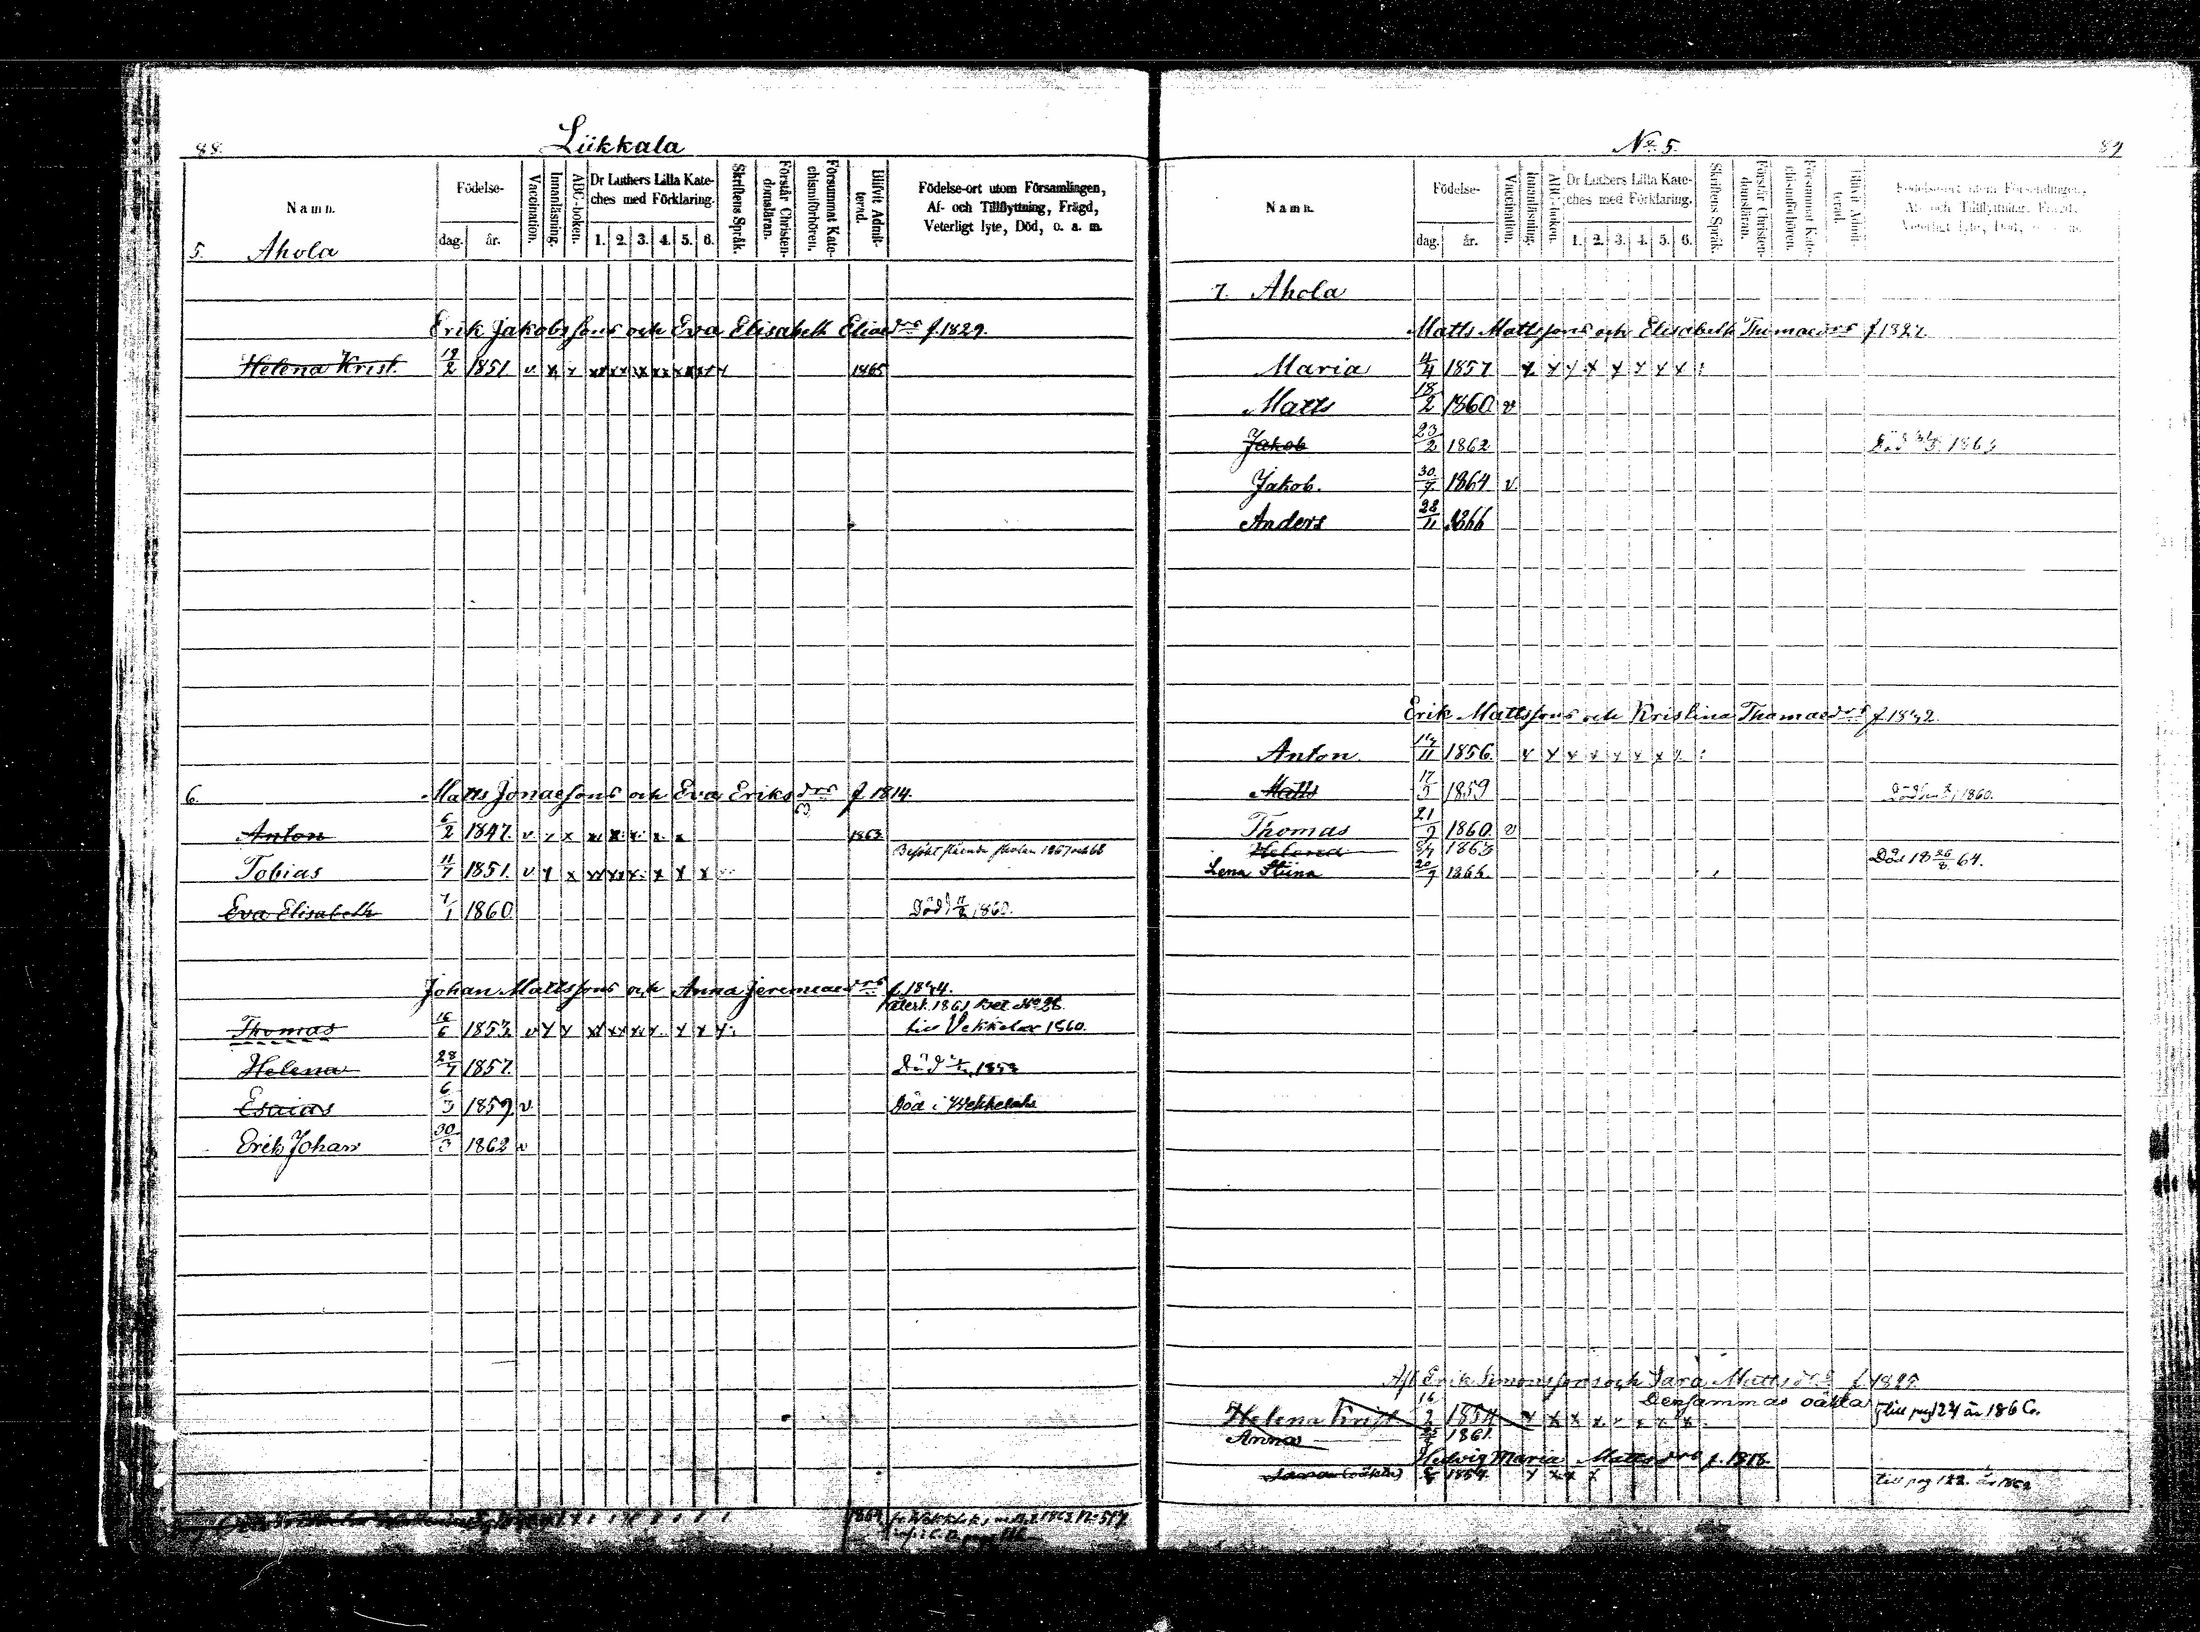 88.
Liikkala
Namn.
Födelse-
dag. år.
Vaccination.
Innanläsning.
ABC-boken.
Dr Luthers Lilla Kate-
ches med Förklaring.
1. 2. 3. 4. 5. 6.
Skriftens Språk.
Förstår Christen-
domsläran.
Försummat Kate-
chismiförhören.
Blifvit Admit-
terad.
Födelse-ort utom Församlingen,
Af- och Tillflyttning, Frägd,
Veterligt lyte, Död, o. a. m.
5. Ahola
Erik Jakobssons och Eva Elisabeth Eliaedrs f. 1829.
Helena Krist. 19/2 1851 v x x 1865
6. Matts Jonaessons och Eva Eriksdrs f 1814.
Anton 6/2 1847. v x x 1863
Besökt skolan 1867 och 68
Tobias 11/7 1851. v x x
Eva Elisabeth 7/1 1860. Död 1860.
Johan Mattssons och Anna Jeremiaedrs
återk. 1861 bet. No 28.
Thomas 16/6 1853 v x x till Vekkelax 1860.
Helena 28/7 1857. Död
Esaias 6/3 1859 v Död i Wekkelaks
Erik Johan 30/3 1862 v
1869
No 5.
89
Namn.
Födelse-
dag. år.
Vaccination.
Innanläsning.
ABC-boken.
Dr Luthers Lilla Kate-
ches med Förklaring.
1. 2. 3. 4. 5. 6.
Skriftens Språk.
Förstår Christen-
domsläran.
Försummat Kate-
chismiförhören.
Blifvit Admit-
terad.
Födelse-ort utom Församlingen,
Af- och Tillflyttning, Frägd,
Veterligt lyte, Död, o. a. m.
7. Ahola
Matts Mattssons och Elisabeth Thomaedrs f 1827.
Maria 4/4 1857 x x x x x x x x
Matts 18/2 1860. v
Jakob 23/2 1862 Död 1863
Jakob. 30/7 1864 v.
Anders 28/11 1866
Erik Mattssons och Kristina Thomaedrs
Anton. 1856. x x x x x x x x
Matts 17/5 1859 Död 1860.
Thomas 21/9 1860. v
Helena 1863 Död 18 26/8 64.
Lena Stiina 20/9 1866.
Af Erik Simonssons och Sara Mattsdrs f. 1827.
Densammas oäkta
Helena Krist 16/2 1854 till pag 124 år 1866.
Anna 1861.
Hedvig Maria Mattsdrs f. 1818.
(oäkta) 1854. till pag 122.